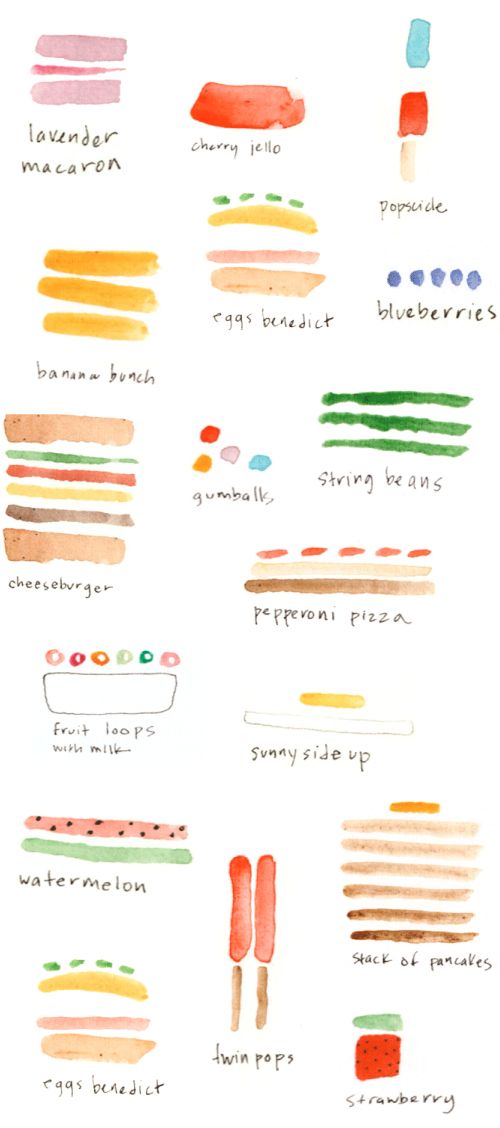 lavender
macaron
cherry jello
popsicle
eggs benedict
blueberries
banana bunch
gumballs
string beans
cheeseburger
pepperoni pizza
fruit loops
with milk
sunny side up
watermelon
stack of pancakes
twin pops
eggs benedict
strawberry